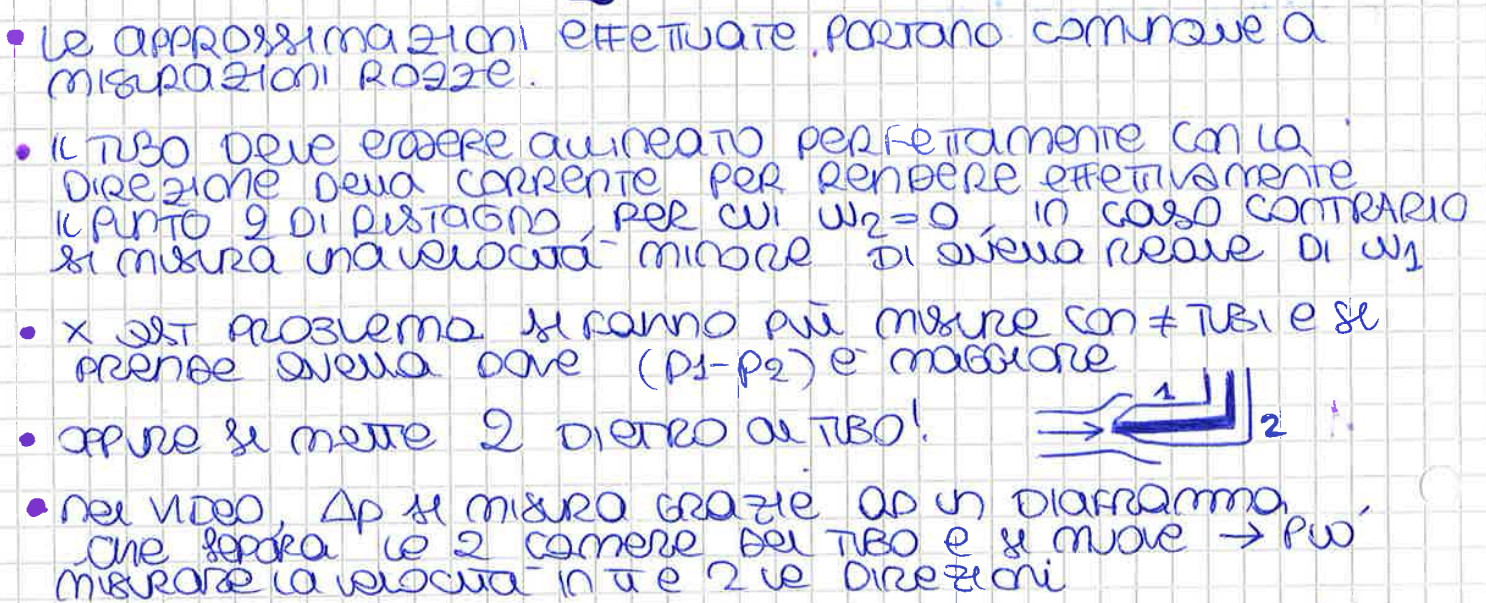 • Le APPROSSIMAZIONI EFFETTUATE PORTANO COMUNQUE A
MISURAZIONI ROZZE.
• IL TUBO DEVE ESSERE ALLINEATO PERFETTAMENTE CON LA
DIREZIONE DELLA CORRENTE PER RENDERE EFFETTIVAMENTE
IL PUNTO 2 DI RISTAGNO, PER CUI w2=0, IN CASO CONTRARIO
SI MISURA UNA VELOCITÀ MINORE DI QUELLA REALE DI w1
• X QST PROBLEMA SI FANNO PIÙ MISURE CON ≠ TUBI E SI
PRENDE QUELLA DOVE (P1-P2) È MAGGIORE
• OPPURE SI METTE 2 DIETRO AL TUBO!
1
2
• NEL VIDEO, Δp SI MISURA GRAZIE AD UN DIAFRAMMA,
CHE SEPARA LE 2 CAMERE DEL TUBO E SI MUOVE → PUÒ
MISURARE LA VELOCITÀ IN TT E 2 LE DIREZIONI